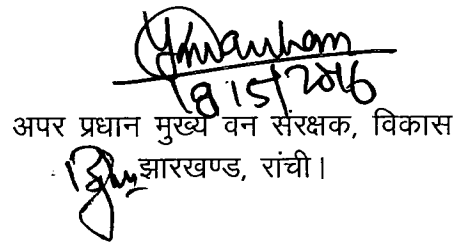 18/5/2016
अपर प्रधान मुख्य वन संरक्षक, विकास
झारखण्ड, रांची।